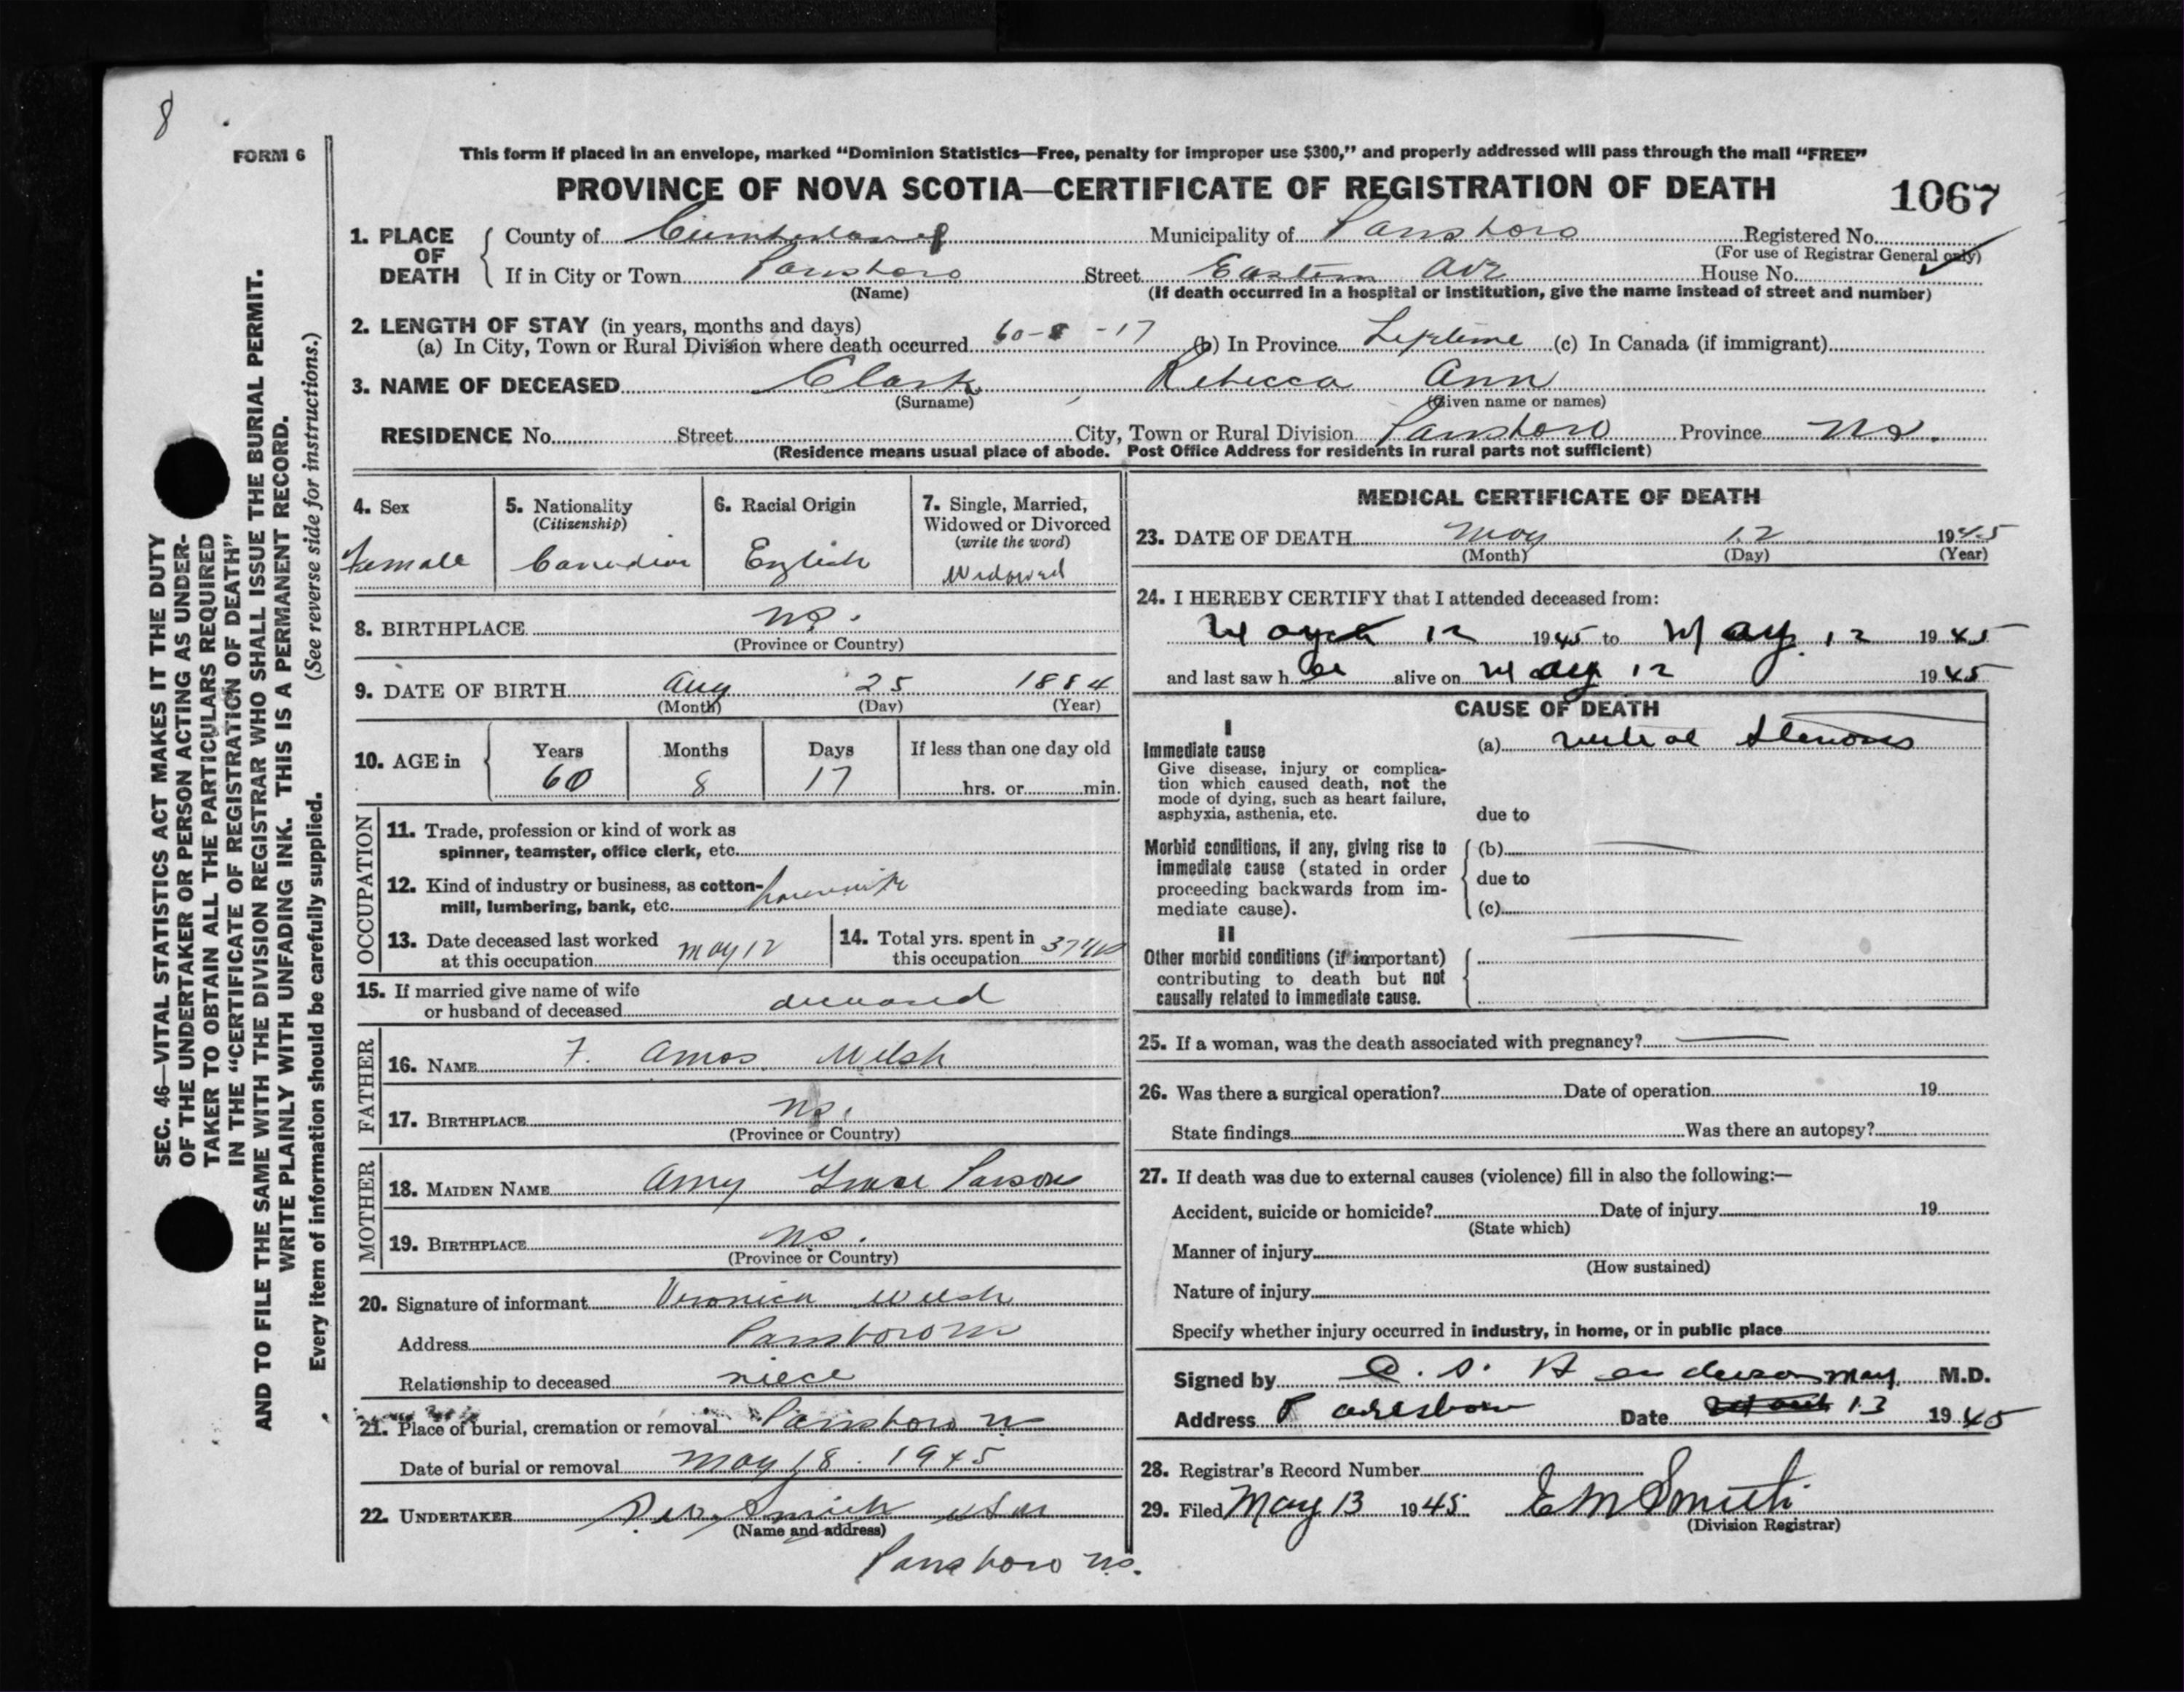 8
FORM 6
This form if placed in an envelope, marked “Dominion Statistics—Free, penalty for improper use $300,” and properly addressed will pass through the mail “FREE”
PROVINCE OF NOVA SCOTIA—CERTIFICATE OF REGISTRATION OF DEATH 1067
1. PLACE OF DEATH
County of Cumberland Municipality of Parrsboro Registered No.
(For use of Registrar General only)
If in City or Town Parrsboro Street Eastern Ave House No.
(Name) (If death occurred in a hospital or institution, give the name instead of street and number)
2. LENGTH OF STAY (in years, months and days)
(a) In City, Town or Rural Division where death occurred 60-8-17 (b) In Province Lifetime (c) In Canada (if immigrant)
3. NAME OF DECEASED Clark Rebecca Ann
(Surname) (Given name or names)
RESIDENCE No. Street City, Town or Rural Division Parrsboro Province N.S.
(Residence means usual place of abode. Post Office Address for residents in rural parts not sufficient)
4. Sex
Female
5. Nationality
(Citizenship)
Canadian
6. Racial Origin
English
7. Single, Married,
Widowed or Divorced
(write the word)
Widowed
8. BIRTHPLACE N.S.
(Province or Country)
9. DATE OF BIRTH Aug 25 1884
(Month) (Day) (Year)
10. AGE in Years Months Days If less than one day old
60 8 17 hrs. or min.
OCCUPATION
11. Trade, profession or kind of work as
spinner, teamster, office clerk, etc.
12. Kind of industry or business, as cotton-
mill, lumbering, bank, etc. housewife
13. Date deceased last worked
at this occupation May 12
14. Total yrs. spent in
this occupation
15. If married give name of wife
or husband of deceased deceased
FATHER
16. NAME F. Amos Welsh
17. BIRTHPLACE N.S.
(Province or Country)
MOTHER
18. MAIDEN NAME Amy Grace Parsons
19. BIRTHPLACE N.S.
(Province or Country)
20. Signature of informant Veronica Welsh
Address Parrsboro N
Relationship to deceased niece
21. Place of burial, cremation or removal Parrsboro N
Date of burial or removal May 18. 1945
22. UNDERTAKER Smith
(Name and address)
Parrsboro N.S.
MEDICAL CERTIFICATE OF DEATH
23. DATE OF DEATH May 12 1945
(Month) (Day) (Year)
24. I HEREBY CERTIFY that I attended deceased from:
March 12 1945 to May 12 1945
and last saw her alive on May 12 1945
CAUSE OF DEATH
I
Immediate cause
Give disease, injury or complica-
tion which caused death, not the
mode of dying, such as heart failure,
asphyxia, asthenia, etc.
(a) mitral stenosis
due to
Morbid conditions, if any, giving rise to
immediate cause (stated in order
proceeding backwards from im-
mediate cause).
(b)
due to
(c)
II
Other morbid conditions (if important)
contributing to death but not
causally related to immediate cause.
25. If a woman, was the death associated with pregnancy?
26. Was there a surgical operation? Date of operation 19
State findings Was there an autopsy?
27. If death was due to external causes (violence) fill in also the following:—
Accident, suicide or homicide? Date of injury 19
(State which)
Manner of injury
(How sustained)
Nature of injury
Specify whether injury occurred in industry, in home, or in public place
Signed by Henderson M.D.
Address Parrsboro Date May 13 1945
28. Registrar's Record Number
29. Filed May 13 1945 E M Smith
(Division Registrar)
SEC. 46—VITAL STATISTICS ACT MAKES IT THE DUTY
OF THE UNDERTAKER OR PERSON ACTING AS UNDER-
TAKER TO OBTAIN ALL THE PARTICULARS REQUIRED
IN THE “CERTIFICATE OF REGISTRATION OF DEATH”
AND TO FILE THE SAME WITH THE DIVISION REGISTRAR WHO SHALL ISSUE THE BURIAL PERMIT.
WRITE PLAINLY WITH UNFADING INK. THIS IS A PERMANENT RECORD.
Every item of information should be carefully supplied. (See reverse side for instructions.)